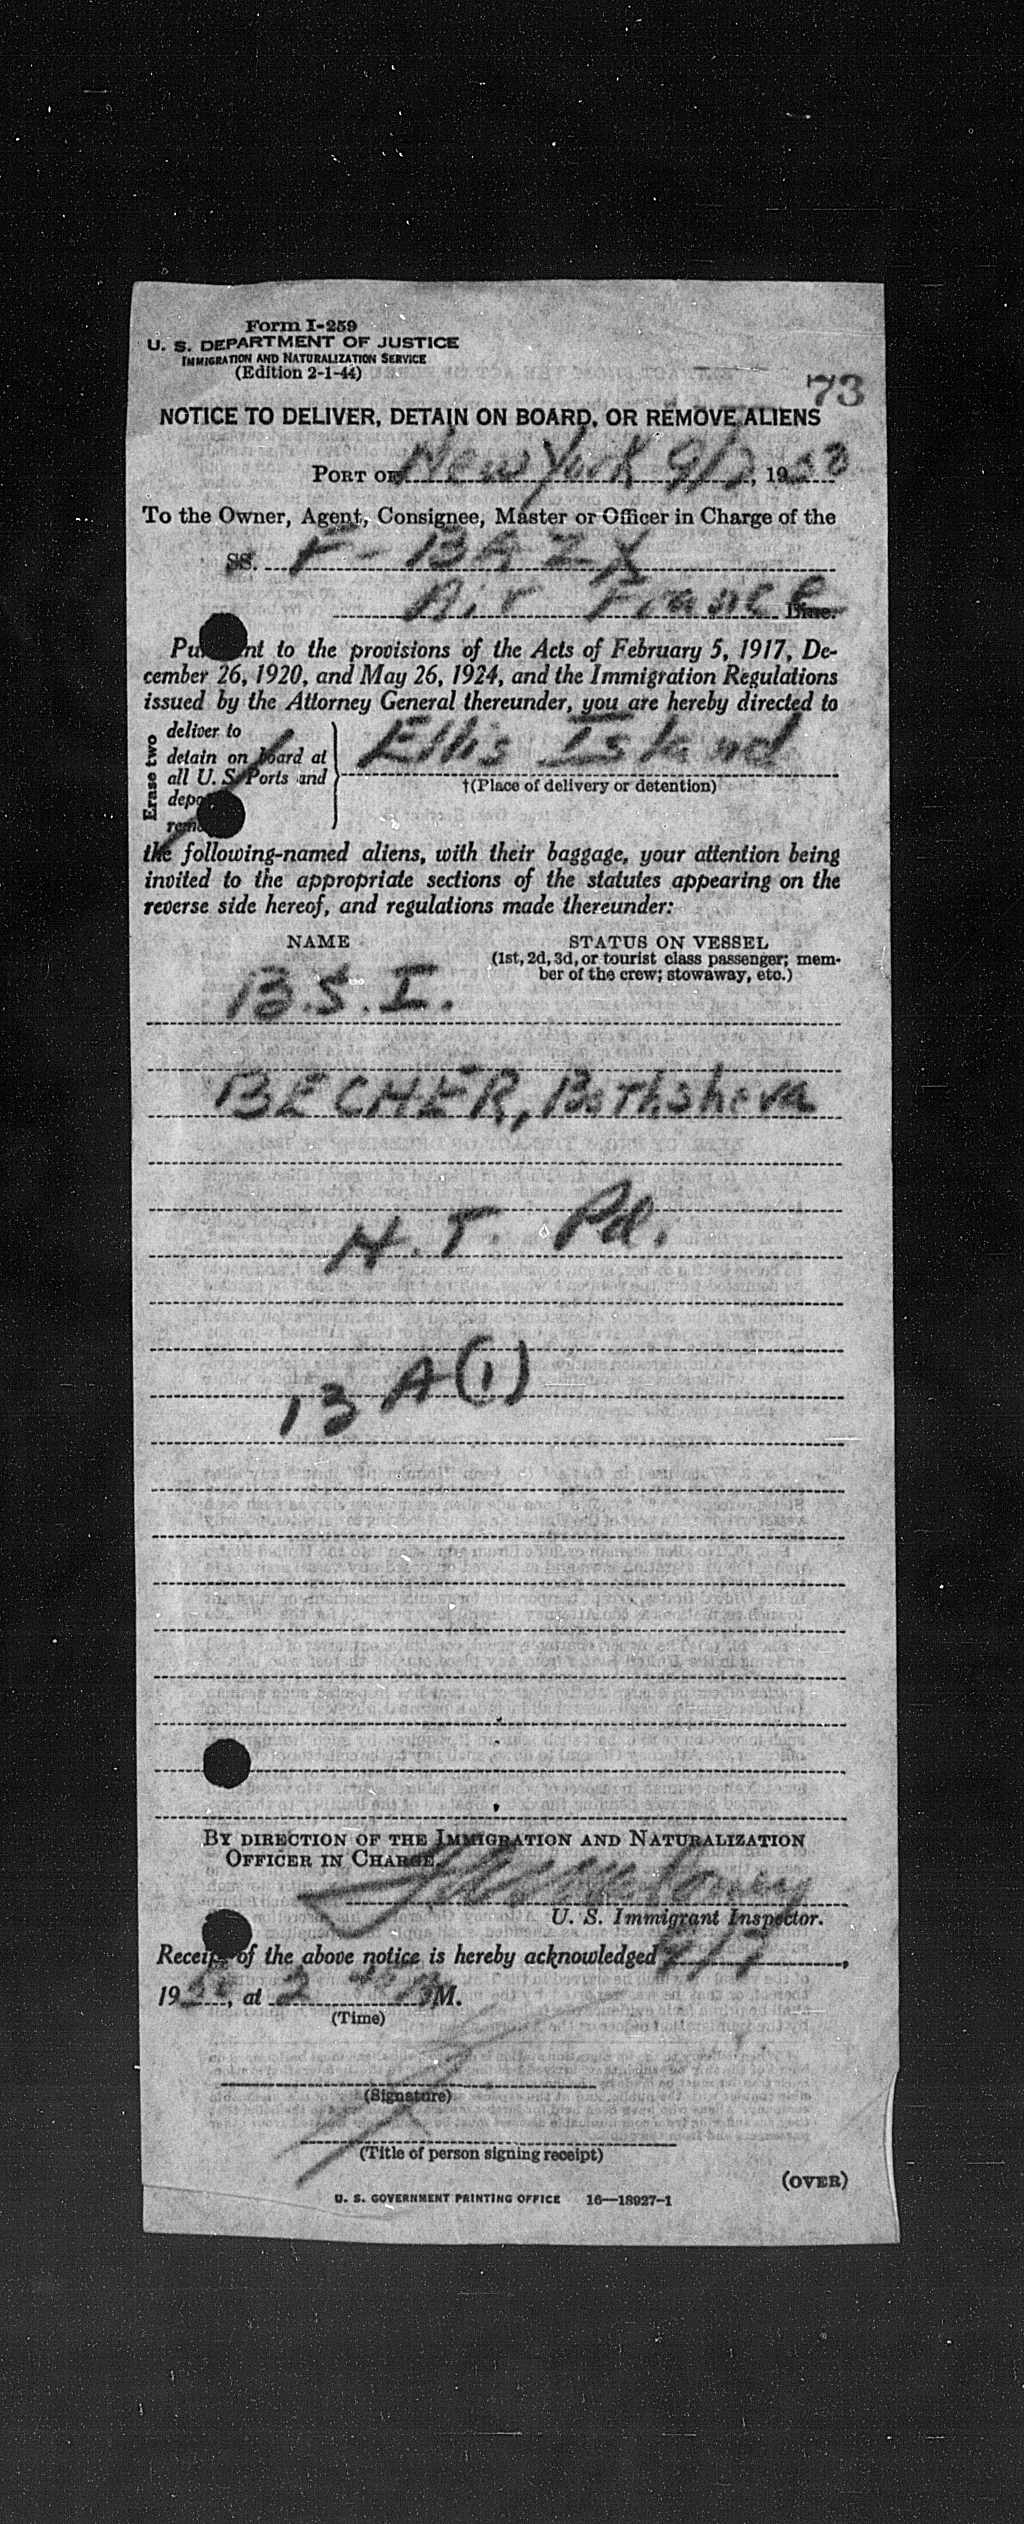 Form I-259
U. S. DEPARTMENT OF JUSTICE
IMMIGRATION AND NATURALIZATION SERVICE
(Edition 2-1-44)
73
NOTICE TO DELIVER, DETAIN ON BOARD, OR REMOVE ALIENS
PORT OF New York 9/7, 19
To the Owner, Agent, Consignee, Master or Officer in Charge of the
SS. F-BAZX
Air France Line.
Pursuant to the provisions of the Acts of February 5, 1917, De-
cember 26, 1920, and May 26, 1924, and the Immigration Regulations
issued by the Attorney General thereunder, you are hereby directed to
Erase two
deliver to
detain on board at
all U. S. Ports and
Ellis Island
†(Place of delivery or detention)
the following-named aliens, with their baggage, your attention being
invited to the appropriate sections of the statutes appearing on the
reverse side hereof, and regulations made thereunder:
NAME STATUS ON VESSEL
(1st, 2d, 3d, or tourist class passenger; mem-
ber of the crew; stowaway, etc.)
B.S.I.
BECHER, Bathsheva
H.T Pd.
13 A(1)
BY DIRECTION OF THE IMMIGRATION AND NATURALIZATION
OFFICER IN CHARGE.
U. S. Immigrant Inspector.
Receipt of the above notice is hereby acknowledged 9/7,
19, at 2 M.
(Time)
(Signature)
(Title of person signing receipt)
(OVER)
U. S. GOVERNMENT PRINTING OFFICE 16—18927-1